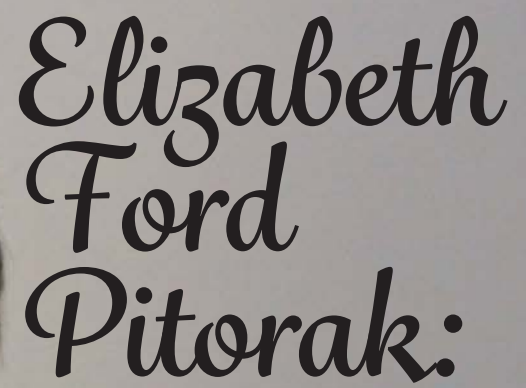 Elizabeth
Ford
Pitorak: